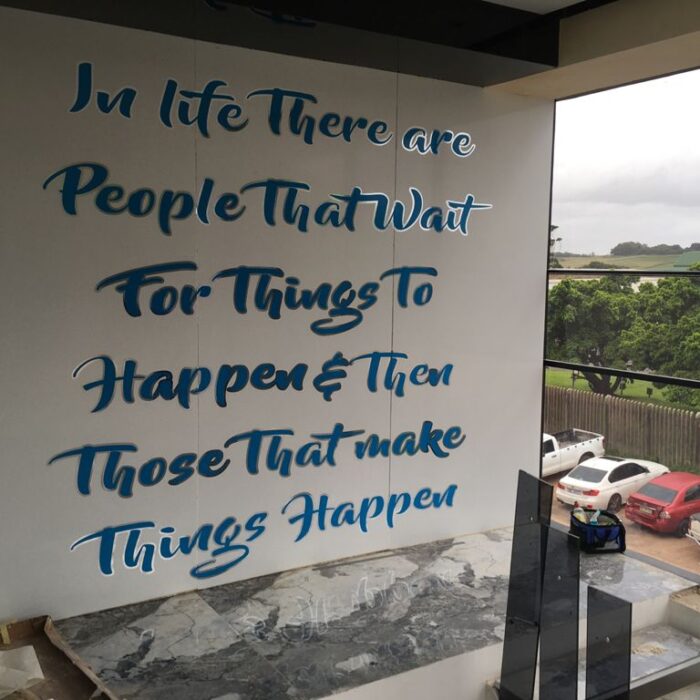 In life There are
People That Wait
For Things To
Happen & Then
Those That make
Things Happen